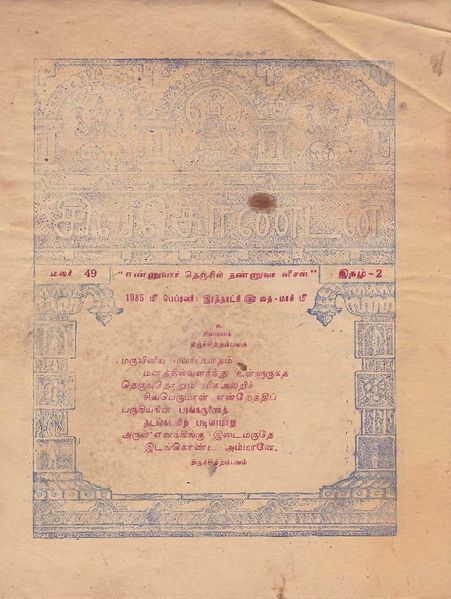 சிவதொண்டன்
மலர் 49 "எண்ணுவார் நெஞ்சில் நண்ணுவா னீசன்" இதழ்-2
1985 மீ பெப்ரவரி: இரத்தாட்சி ௵ தை-மாசி மீ
உ
சிவமயம்
திருச்சிற்றம்பலம்
மருவினிய மலர்ப்பாதம்
மனத்தில்வளர்ந்து உள்ளுருகத்
தெருவுதொறும் மிகஅலறிச்
சிவபெருமான் என்றேத்திப்
பருகியநின் பரங்கருணைத்
தடங்கடலிற் படிவாமாறு
அருள்எனக்கிங்கு இடைமருதே
இடங்கொண்ட அம்மானே.
திருச்சிற்றம்பலம்